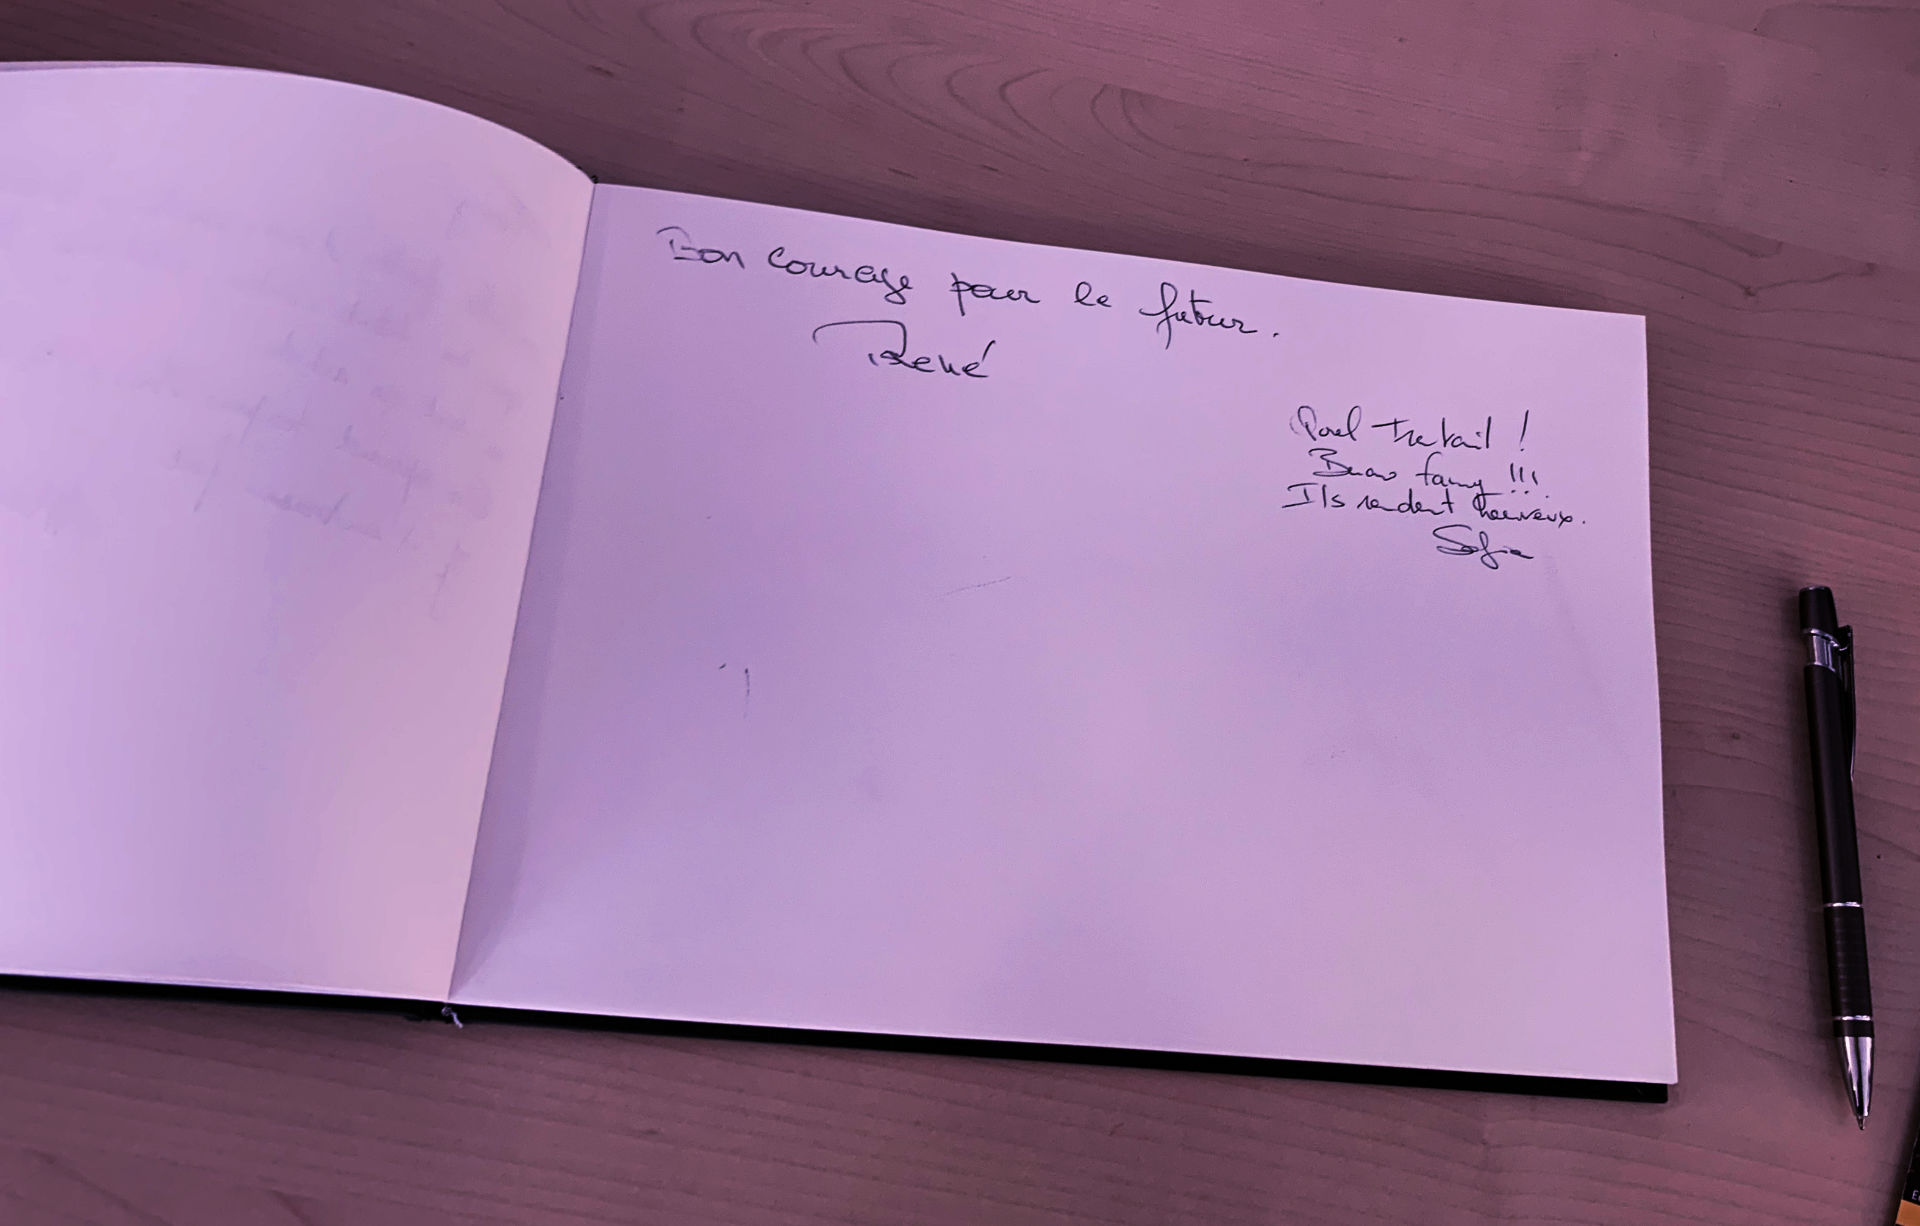 Bon courage pour le futur.
René
Quel travail !
Bravo fanny !!!
Ils rendent heureux.
Sofia